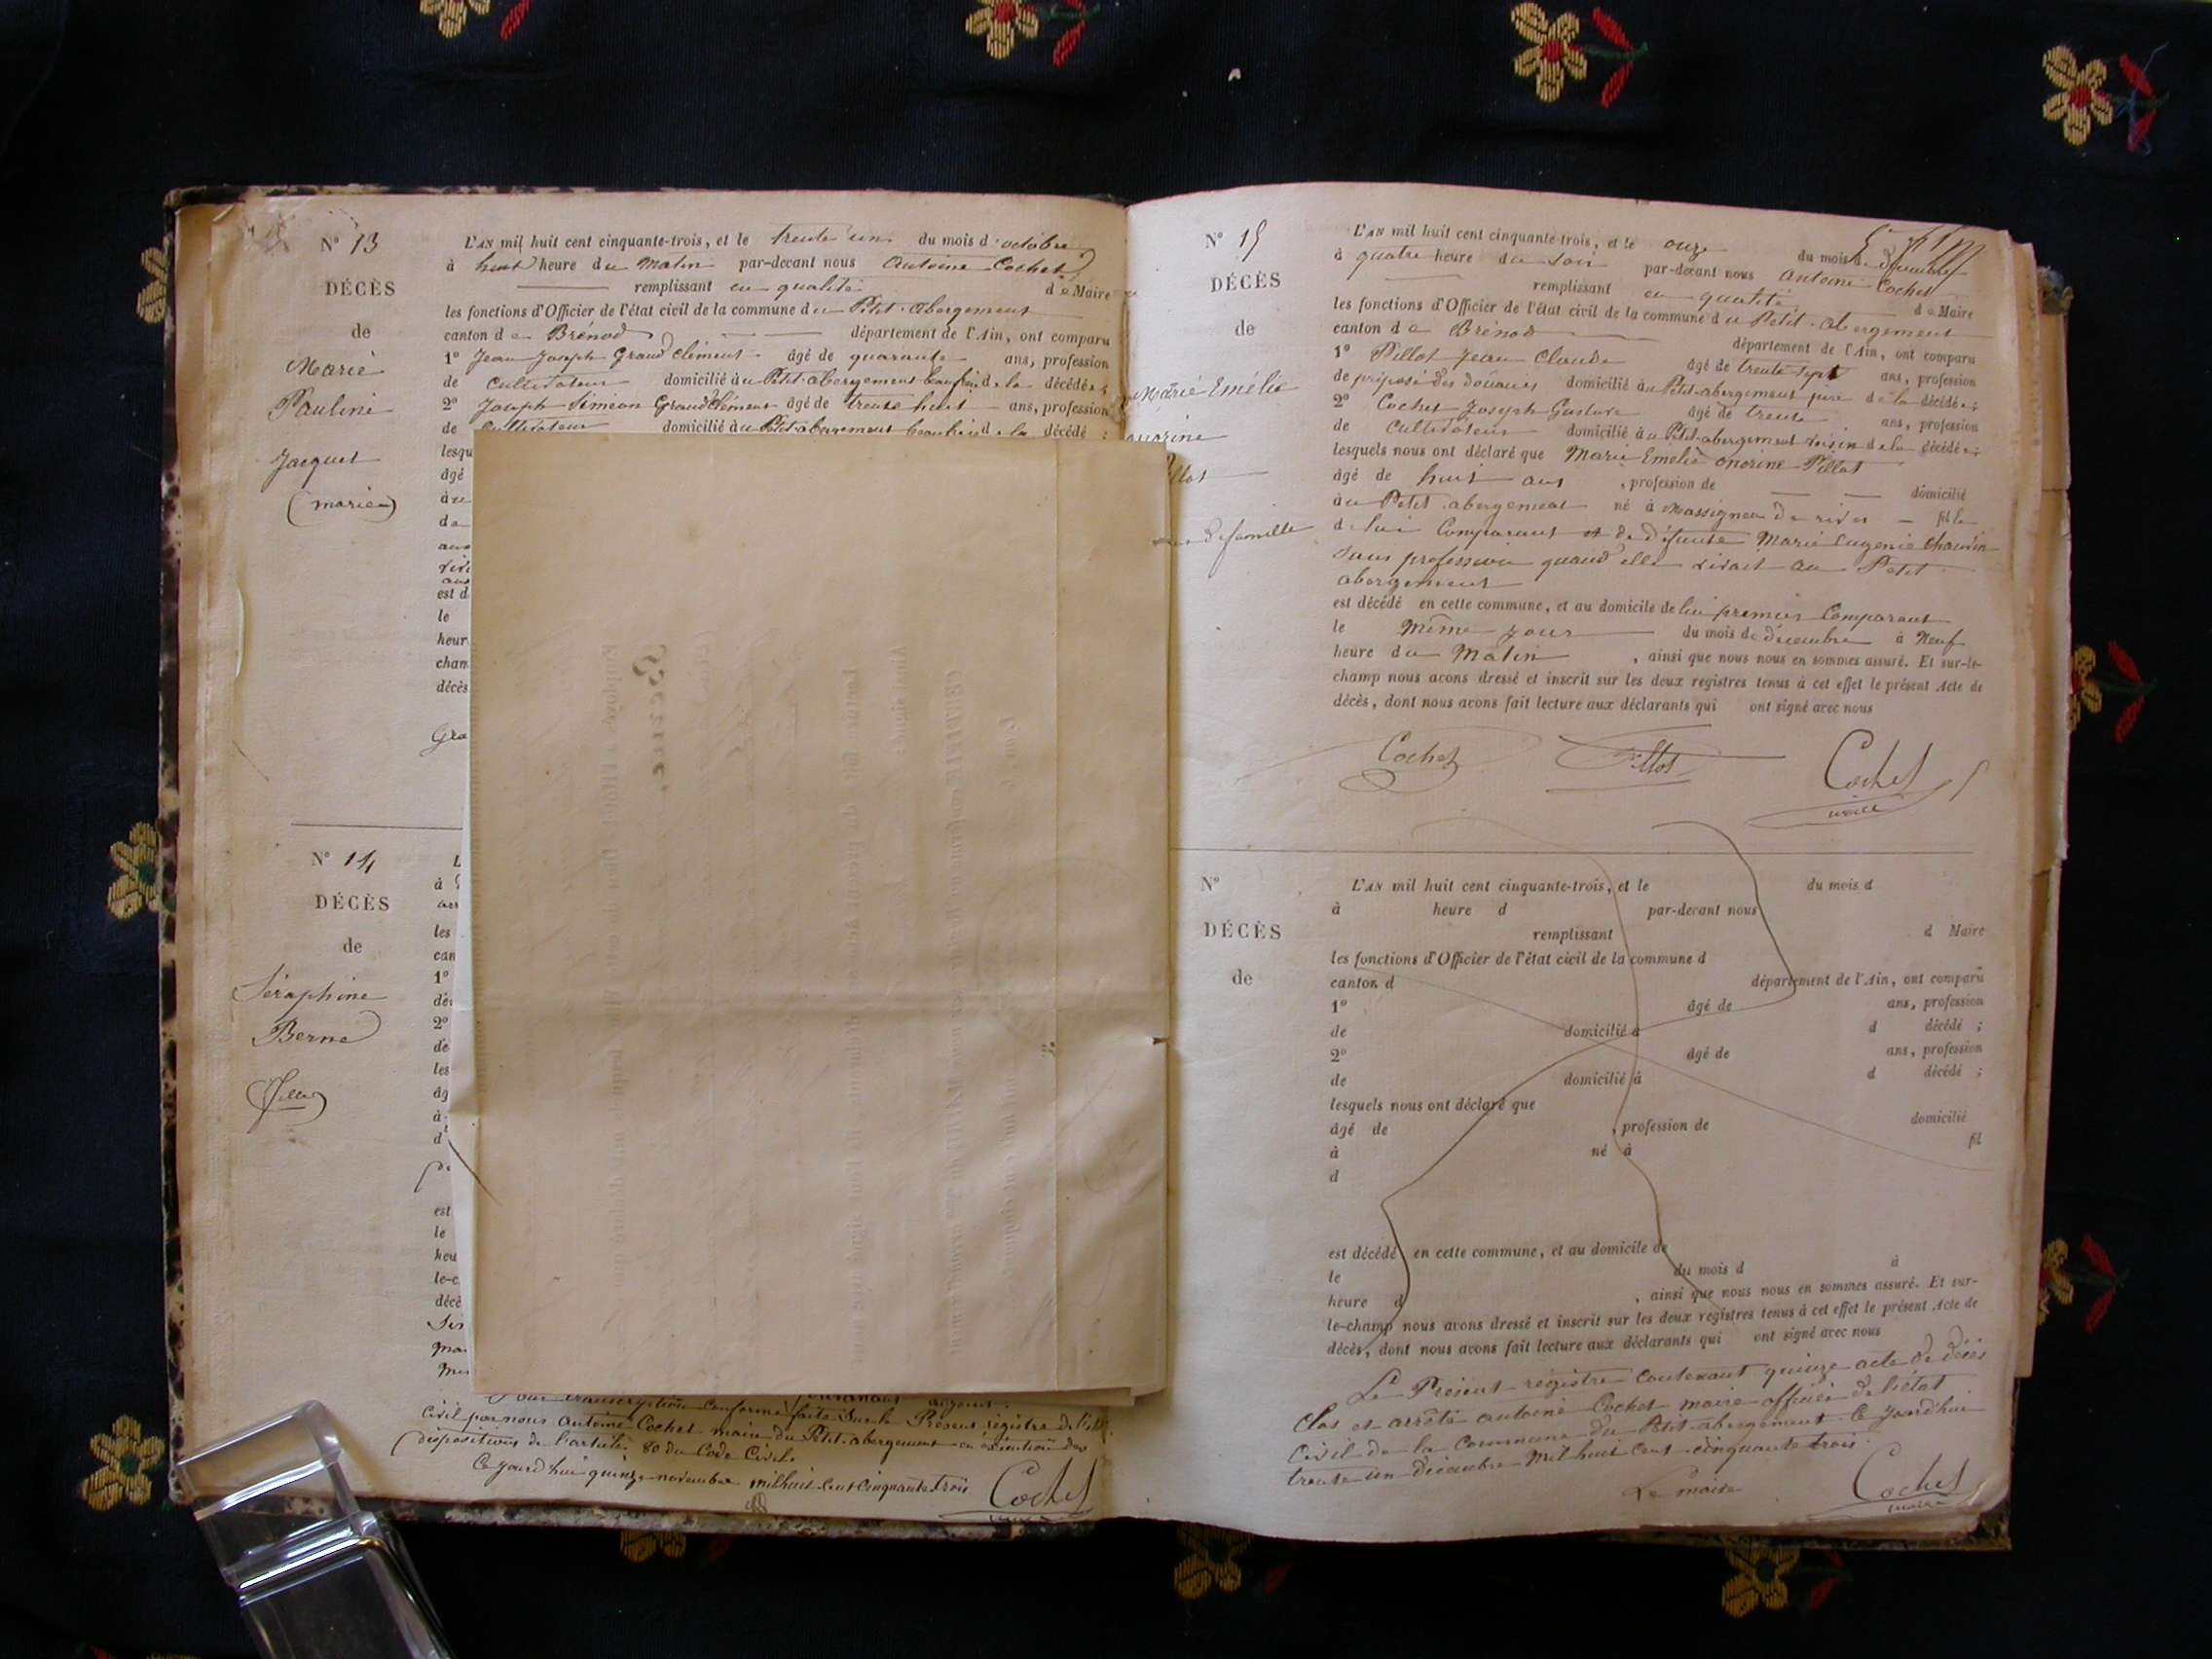 N° 13
DÉCÈS
de
Marie
Pauline
Jacquet
(mariée)
L'AN mil huit cent cinquante-trois, et le trente un du mois d'octobre
à huit heure du matin par-devant nous Antoine Cochet
remplissant en qualité de Maire
les fonctions d'Officier de l'état civil de la commune du Petit-abergement
canton de Brénod département de l'Ain, ont comparu
1° Jean Joseph Grand Clément âgé de quarante ans, profession
de cultivateur domicilié au Petit-abergement beaufrère de la décédée ;
2° Joseph Siméon Grand Clément âgé de trente huit ans, profession
de cultivateur domicilié au Petit-abergement beaufrère de la décédé ;
lesqu
âgé
au
de
est d
le
heur
cham
décès
Gra
N° 14
DÉCÈS
de
Séraphine
Berne
fille
L
à
les
can
1°
2°
de
les
âg
à
d
est
le
heu
le-c
décè
Pour transcription conforme faite sur le Présent registre de l'état
civil par nous Antoine Cochet maire du Petit-abergement en exécution des
dispositions de l'article 80 du Code Civil.
Ce jourd'hui quinze novembre mil huit cent cinquante trois Cochet
N° 15
DÉCÈS
de
Marie Emélie
L'AN mil huit cent cinquante-trois, et le onze du mois de décembre
à quatre heure du soir par-devant nous Antoine Cochet
remplissant en qualité de Maire
les fonctions d'Officier de l'état civil de la commune du Petit-abergement
canton de Brénod département de l'Ain, ont comparu
1° Pillot Jean Claude âgé de trente sept ans, profession
de préposé des douanes domicilié au Petit-abergement père de la décédée ;
2° Cochet Joseph Gustave âgé de trente ans, profession
de cultivateur domicilié au Petit-abergement voisin de la décédée ;
lesquels nous ont déclaré que Marie Emelie onorine Pillot
âgé de huit ans , profession de domicilié
au Petit abergement né à Massignieu de rives fille
de lui Comparant et de défunte Marie Eugenie Chauvin
sans profession quand elle vivait au Petit
abergement
est décédé en cette commune, et au domicile de lui premier Comparant
le même jour du mois de décembre à Neuf
heure du Matin , ainsi que nous nous en sommes assuré. Et sur-le-
champ nous avons dressé et inscrit sur les deux registres tenus à cet effet le présent Acte de
décès, dont nous avons fait lecture aux déclarants qui ont signé avec nous
Cochet Pillot Cochet
maire
N°
DÉCÈS
de
L'AN mil huit cent cinquante-trois, et le du mois d
à heure d par-devant nous
remplissant d Maire
les fonctions d'Officier de l'état civil de la commune d
canton d département de l'Ain, ont comparu
1° âgé de ans, profession
de domicilié à d décédé ;
2° âgé de ans, profession
de domicilié à d décédé ;
lesquels nous ont déclaré que
âgé de , profession de domicilié
à né à fil
d
est décédé en cette commune, et au domicile de
le du mois d à
heure d , ainsi que nous nous en sommes assuré. Et sur-
le-champ nous avons dressé et inscrit sur les deux registres tenus à cet effet le présent Acte de
décès, dont nous avons fait lecture aux déclarants qui ont signé avec nous
Le Présent registre contenant quinze acte de décès
Clos et arrêté antoine Cochet maire officier de l'état
Civil de la Commune du Petit-abergement ce jourd'hui
trente un décembre mil huit cent cinquante trois.
Le maire Cochet
maire